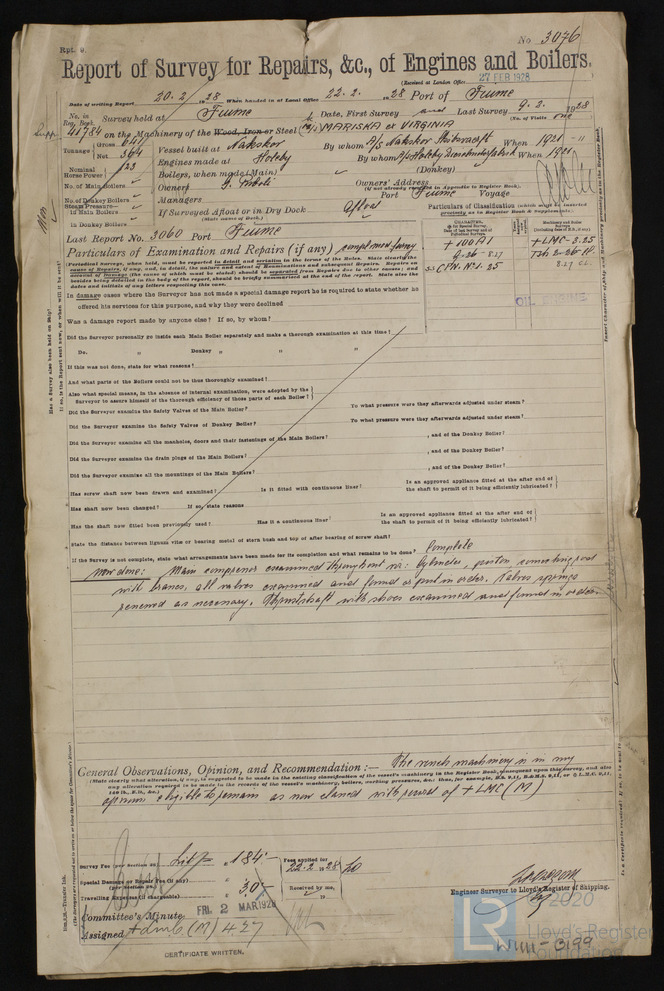 Rpt. 9.
No 3076
Report of Survey for Repairs, &c., of Engines and Boilers.
(Received at London Office 27 FEB 1928
Date of writing Report 20.2 1928 When handed in at Local Office 22.2. 1928 Port of Fiume
No. in Reg. Book. Survey held at Fiume Date, First Survey and Last Survey 9.2. 1928
(No. of Visits one
Supp. 41784 on the Machinery of the Wood, Iron or Steel MARISKA et VIRGINIA
Tonnage Gross 641 Net 364
Vessel built at Nakskov By whom A/S Nakskov Skibsvaerft When 1920
Nominal Horse Power 123
Engines made at Holeby By whom When 1920
No. of Main Boilers Boilers, when made (Main) (Donkey)
No. of Donkey Boilers Owners Owners' Address
(if not already recorded in Appendix to Register Book.)
Steam Pressure— in Main Boilers Managers Port Fiume Voyage
in Donkey Boilers If Surveyed Afloat or in Dry Dock Afloat
(State name of Dock.)
Last Report No. 3060 Port Fiume
Particulars of Classification (which must be inserted precisely as in Register Book & Supplements).
+100A1
9.26 - 8.27
SS CPN. No 1. 25
+LMC-3.25
8.27 CL
OIL ENGINE
Particulars of Examination and Repairs (if any)
In damage cases where the Surveyor has not made a special damage report he is required to state whether he
offered his services for this purpose, and why they were declined
Was a damage report made by anyone else? If so, by whom?
Did the Surveyor personally go inside each Main Boiler separately and make a thorough examination at this time?
Do. " Donkey " " "
If this was not done, state for what reasons?
And what parts of the Boilers could not be thus thoroughly examined?
Also what special means, in the absence of internal examination, were adopted by the Surveyor to assure himself of the thorough efficiency of those parts of each Boiler?
Did the Surveyor examine the Safety Valves of the Main Boiler? To what pressure were they afterwards adjusted under steam?
Did the Surveyor examine the Safety Valves of Donkey Boiler? To what pressure were they afterwards adjusted under steam?
Did the Surveyor examine all the manholes, doors and their fastenings of the Main Boilers? , and of the Donkey Boiler?
Did the Surveyor examine the drain plugs of the Main Boilers? , and of the Donkey Boiler?
Did the Surveyor examine all the mountings of the Main Boilers? , and of the Donkey Boiler?
Has screw shaft now been drawn and examined? Is it fitted with continuous liner? Is an approved appliance fitted at the after end of the shaft to permit of it being efficiently lubricated?
Has shaft now been changed? If so, state reasons
Has the shaft now fitted been previously used? Has it a continuous liner? Is an approved appliance fitted at the after end of the shaft to permit of it being efficiently lubricated?
State the distance between lignum vitæ or bearing metal of stern bush and top of after bearing of screw shaft?
If the Survey is not complete, state what arrangements have been made for its completion and what remains to be done? Complete
Now done: Main compressor examined throughout viz: cylinder, piston, connecting rod
with brasses, all valves examined and found or put in order. Valves springs
renewed as necessary. Thrustshaft with shoes examined and found in order
General Observations, Opinion, and Recommendation:— The vessel's machinery is in my
(State clearly what alteration, if any, is suggested to be made in the existing classification of the vessel's machinery in the Register Book, consequent upon this survey, and also
any alteration required to be made in the records of the vessel's machinery, boilers, working pressures, &c.
opinion eligible to remain as now classed with record of +LMC (M)
Survey Fee (per Section 29) Lit. 184
Special Damage or Repair Fee (if any) (per Section 29)
Travelling Expenses (if chargeable) 30
Fees applied for 22.2 1928
Received by me, 19
Engineer Surveyor to Lloyd's Register of Shipping.
Committee's Minute FRI. 2 MAR 1928
Assigned +LMC (M) 4.27
CERTIFICATE WRITTEN.
LR
© 2020
Lloyd's Register
Foundation
W1111-0199